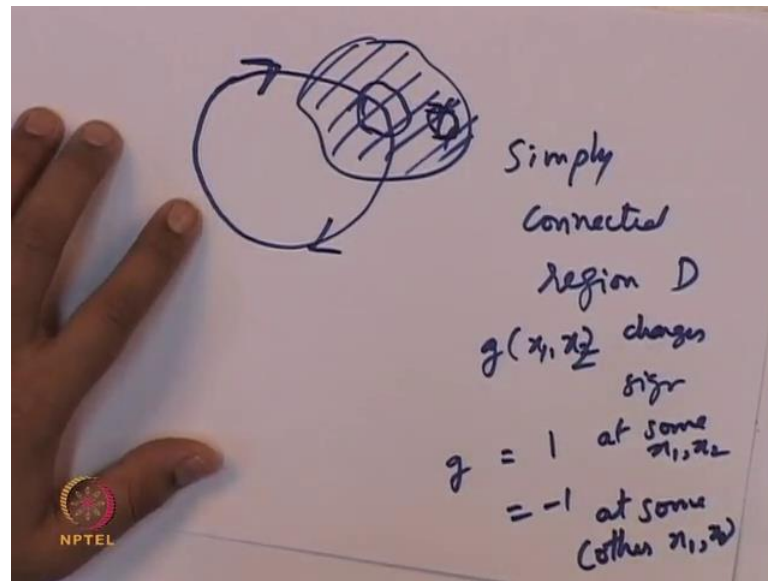 Simply
Connected
region D
g(x₁, x₂) changes
sign
g = 1 at some
x₁, x₂
= -1 at some
(other x₁, x₂)
NPTEL